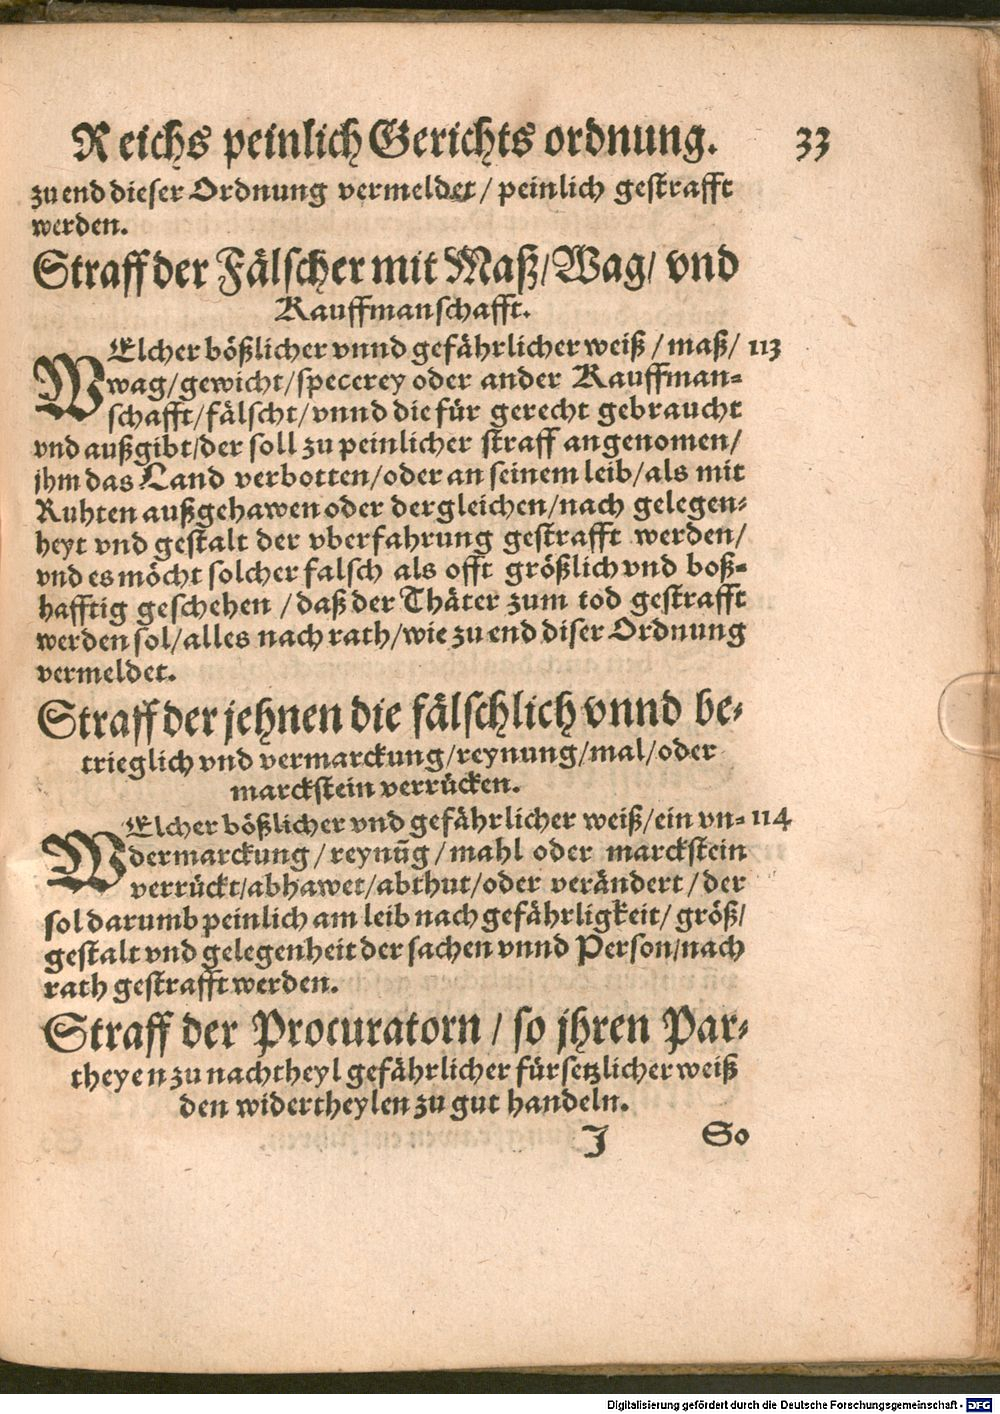 Reichs peinlich Gerichts ordnung. 33
zu end dieser Ordnung vermeldet / peinlich gestrafft
werden.
Straff der Fälscher mit Maß / Wag / vnd
Kauffmanschafft.
WElcher bößlicher vnnd gefährlicher weiß / maß / 113
wag / gewicht / specerey oder ander Kauffman=
schafft / fälscht / vnnd die für gerecht gebraucht
vnd außgibt / der soll zu peinlicher straff angenomen /
jhm das Land verbotten / oder an seinem leib / als mit
Ruhten außgehawen oder dergleichen / nach gelegen=
heyt vnd gestalt der vberfahrung gestrafft werden /
vnd es möcht solcher falsch als offt größlich vnd boß=
hafftig geschehen / daß der Thäter zum tod gestrafft
werden sol / alles nach rath / wie zu end diser Ordnung
vermeldet.
Straff der jehnen die fälschlich vnnd be=
trieglich vnd vermarckung / reynung / mal / oder
marckstein verrücken.
WElcher bößlicher vnd gefährlicher weiß / ein vn= 114
dermarckung / reynūg / mahl oder marckstein
verrückt / abhawet / abthut / oder verändert / der
sol darumb peinlich am leib nach gefährligkeit / größ /
gestalt vnd gelegenheit der sachen vnnd Person / nach
rath gestrafft werden.
Straff der Procuratorn / so jhren Par=
theyen zu nachtheyl gefährlicher fürsetzlicher weiß
den widertheylen zu gut handeln.
J So
Digitalisierung gefördert durch die Deutsche Forschungsgemeinschaft - DFG